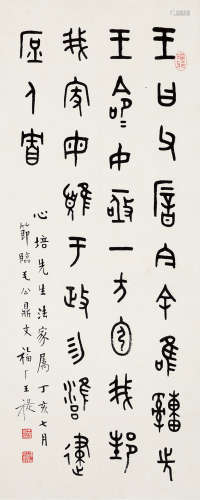 王曰父厝今余唯緟先
王命女亟一方我邦
我家女顀于政勿雝建
庶人貯
心培先生法家属丁亥七月
節臨毛公鼎文福厂王禔